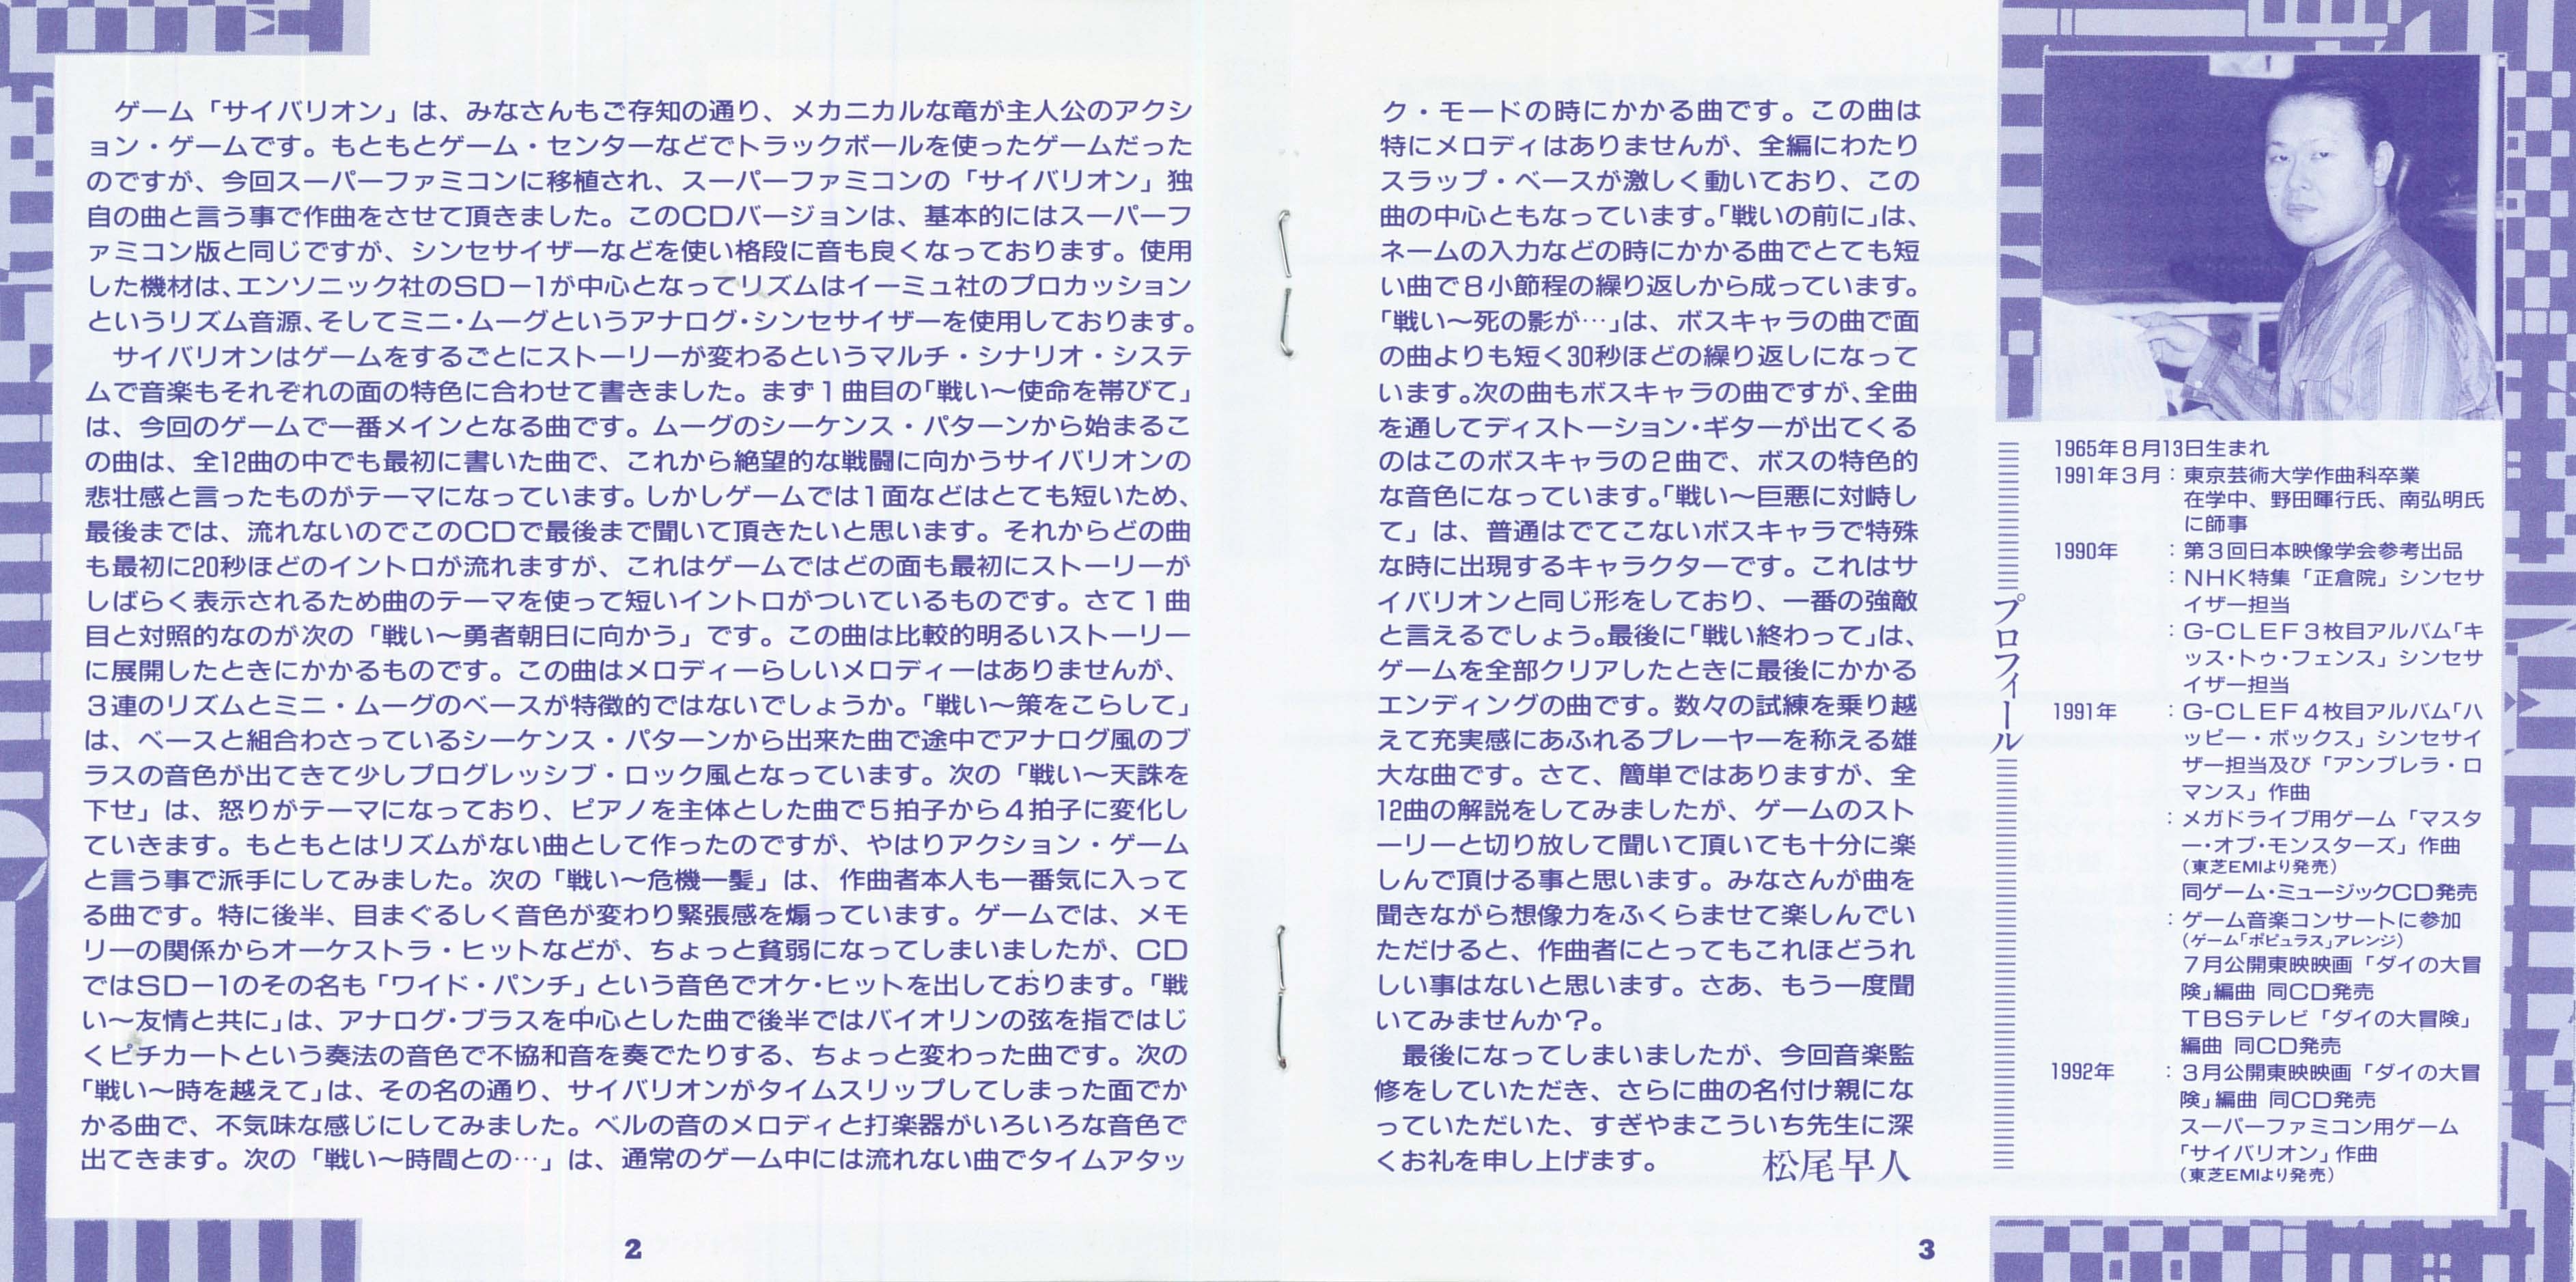 ゲーム「サイバリオン」は、みなさんもご存知の通り、メカニカルな竜が主人公のアクシ
ョン・ゲームです。もともとゲーム・センターなどでトラックボールを使ったゲームだった
のですが、今回スーパーファミコンに移植され、スーパーファミコンの「サイバリオン」独
自の曲と言う事で作曲をさせて頂きました。このCDバージョンは、基本的にはスーパーフ
ァミコン版と同じですが、シンセサイザーなどを使い格段に音も良くなっております。使用
した機材は、エンソニック社のSD－1が中心となってリズムはイーミュ社のプロカッション
というリズム音源、そしてミニ・ムーグというアナログ・シンセサイザーを使用しております。
サイバリオンはゲームをするごとにストーリーが変わるというマルチ・シナリオ・システ
ムで音楽もそれぞれの面の特色に合わせて書きました。まず1曲目の「戦い〜使命を帯びて」
は、今回のゲームで一番メインとなる曲です。ムーグのシーケンス・パターンから始まるこ
の曲は、全12曲の中でも最初に書いた曲で、これから絶望的な戦闘に向かうサイバリオンの
悲壮感と言ったものがテーマになっています。しかしゲームでは1面などはとても短いため、
最後までは、流れないのでこのCDで最後まで聞いて頂きたいと思います。それからどの曲
も最初に20秒ほどのイントロが流れますが、これはゲームではどの面も最初にストーリーが
しばらく表示されるため曲のテーマを使って短いイントロがついているものです。さて1曲
目と対照的なのが次の「戦い〜勇者朝日に向かう」です。この曲は比較的明るいストーリー
に展開したときにかかるものです。この曲はメロディーらしいメロディーはありませんが、
3連のリズムとミニ・ムーグのベースが特徴的ではないでしょうか。「戦い〜策をこらして」
は、ベースと組合わさっているシーケンス・パターンから出来た曲で途中でアナログ風のブ
ラスの音色が出てきて少しプログレッシブ・ロック風となっています。次の「戦い〜天誅を
下せ」は、怒りがテーマになっており、ピアノを主体とした曲で5拍子から4拍子に変化し
ていきます。もともとはリズムがない曲として作ったのですが、やはりアクション・ゲーム
と言う事で派手にしてみました。次の「戦い〜危機一髪」は、作曲者本人も一番気に入って
る曲です。特に後半、目まぐるしく音色が変わり緊張感を煽っています。ゲームでは、メモ
リーの関係からオーケストラ・ヒットなどが、ちょっと貧弱になってしまいましたが、CD
ではSD－1のその名も「ワイド・パンチ」という音色でオケ・ヒットを出しております。「戦
い〜友情と共に」は、アナログ・ブラスを中心とした曲で後半ではバイオリンの弦を指ではじ
くピチカートという奏法の音色で不協和音を奏でたりする、ちょっと変わった曲です。次の
「戦い〜時を越えて」は、その名の通り、サイバリオンがタイムスリップしてしまった面でか
かる曲で、不気味な感じにしてみました。ベルの音のメロディと打楽器がいろいろな音色で
出てきます。次の「戦い〜時間との…」は、通常のゲーム中には流れない曲でタイムアタッ
2
ク・モードの時にかかる曲です。この曲は
特にメロディはありませんが、全編にわたり
スラップ・ベースが激しく動いており、この
曲の中心ともなっています。「戦いの前に」は、
ネームの入力などの時にかかる曲でとても短
い曲で8小節程の繰り返しから成っています。
「戦い〜死の影が…」は、ボスキャラの曲で面
の曲よりも短く30秒ほどの繰り返しになって
います。次の曲もボスキャラの曲ですが、全曲
を通してディストーション・ギターが出てくる
のはこのボスキャラの2曲で、ボスの特色的
な音色になっています。「戦い〜巨悪に対峙し
て」は、普通はでてこないボスキャラで特殊
な時に出現するキャラクターです。これはサ
イバリオンと同じ形をしており、一番の強敵
と言えるでしょう。最後に「戦い終わって」は、
ゲームを全部クリアしたときに最後にかかる
エンディングの曲です。数々の試練を乗り越
えて充実感にあふれるプレーヤーを称える雄
大な曲です。さて、簡単ではありますが、全
12曲の解説をしてみましたが、ゲームのスト
ーリーと切り放して聞いて頂いても十分に楽
しんで頂ける事と思います。みなさんが曲を
聞きながら想像力をふくらませて楽しんでい
ただけると、作曲者にとってもこれほどうれ
しい事はないと思います。さあ、もう一度聞
いてみませんか?。
最後になってしまいましたが、今回音楽監
修をしていただき、さらに曲の名付け親にな
っていただいた、すぎやまこういち先生に深
くお礼を申し上げます。 松尾早人
プロフィール
1965年8月13日生まれ
1991年3月：東京芸術大学作曲科卒業
在学中、野田暉行氏、南弘明氏
に師事
1990年 ：第3回日本映像学会参考出品
：NHK特集「正倉院」シンセサ
イザー担当
：G-CLEF3枚目アルバム「キ
ッス・トゥ・フェンス」シンセサ
イザー担当
1991年 ：G-CLEF4枚目アルバム「ハ
ッピー・ボックス」シンセサイ
ザー担当及び「アンブレラ・ロ
マンス」作曲
：メガドライブ用ゲーム「マスタ
ー・オブ・モンスターズ」作曲
（東芝EMIより発売）
同ゲーム・ミュージックCD発売
：ゲーム音楽コンサートに参加
（ゲーム「ポピュラス」アレンジ）
7月公開東映映画「ダイの大冒
険」編曲 同CD発売
TBSテレビ「ダイの大冒険」
編曲 同CD発売
1992年 ：3月公開東映映画「ダイの大冒
険」編曲 同CD発売
スーパーファミコン用ゲーム
「サイバリオン」作曲
（東芝EMIより発売）
3